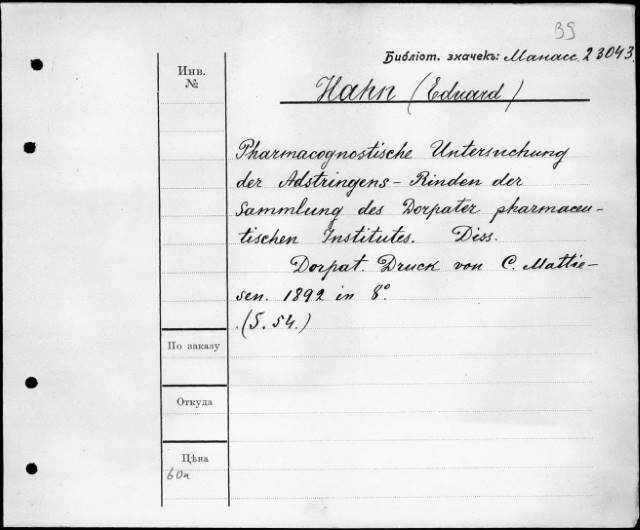 39
Библіот. значекъ: Манасс. 23043.
Инв.
№
Hahn (Eduard)
Pharmacognostische Untersuchung
der Adstringens-Rinden der
Sammlung des Dorpater pharmaceu-
tischen Institutes. Diss.
Dorpat. Druck von C. Mattie-
sen. 1892 in 8°.
(S. 54.)
По заказу
Откуда
Цѣна
60к